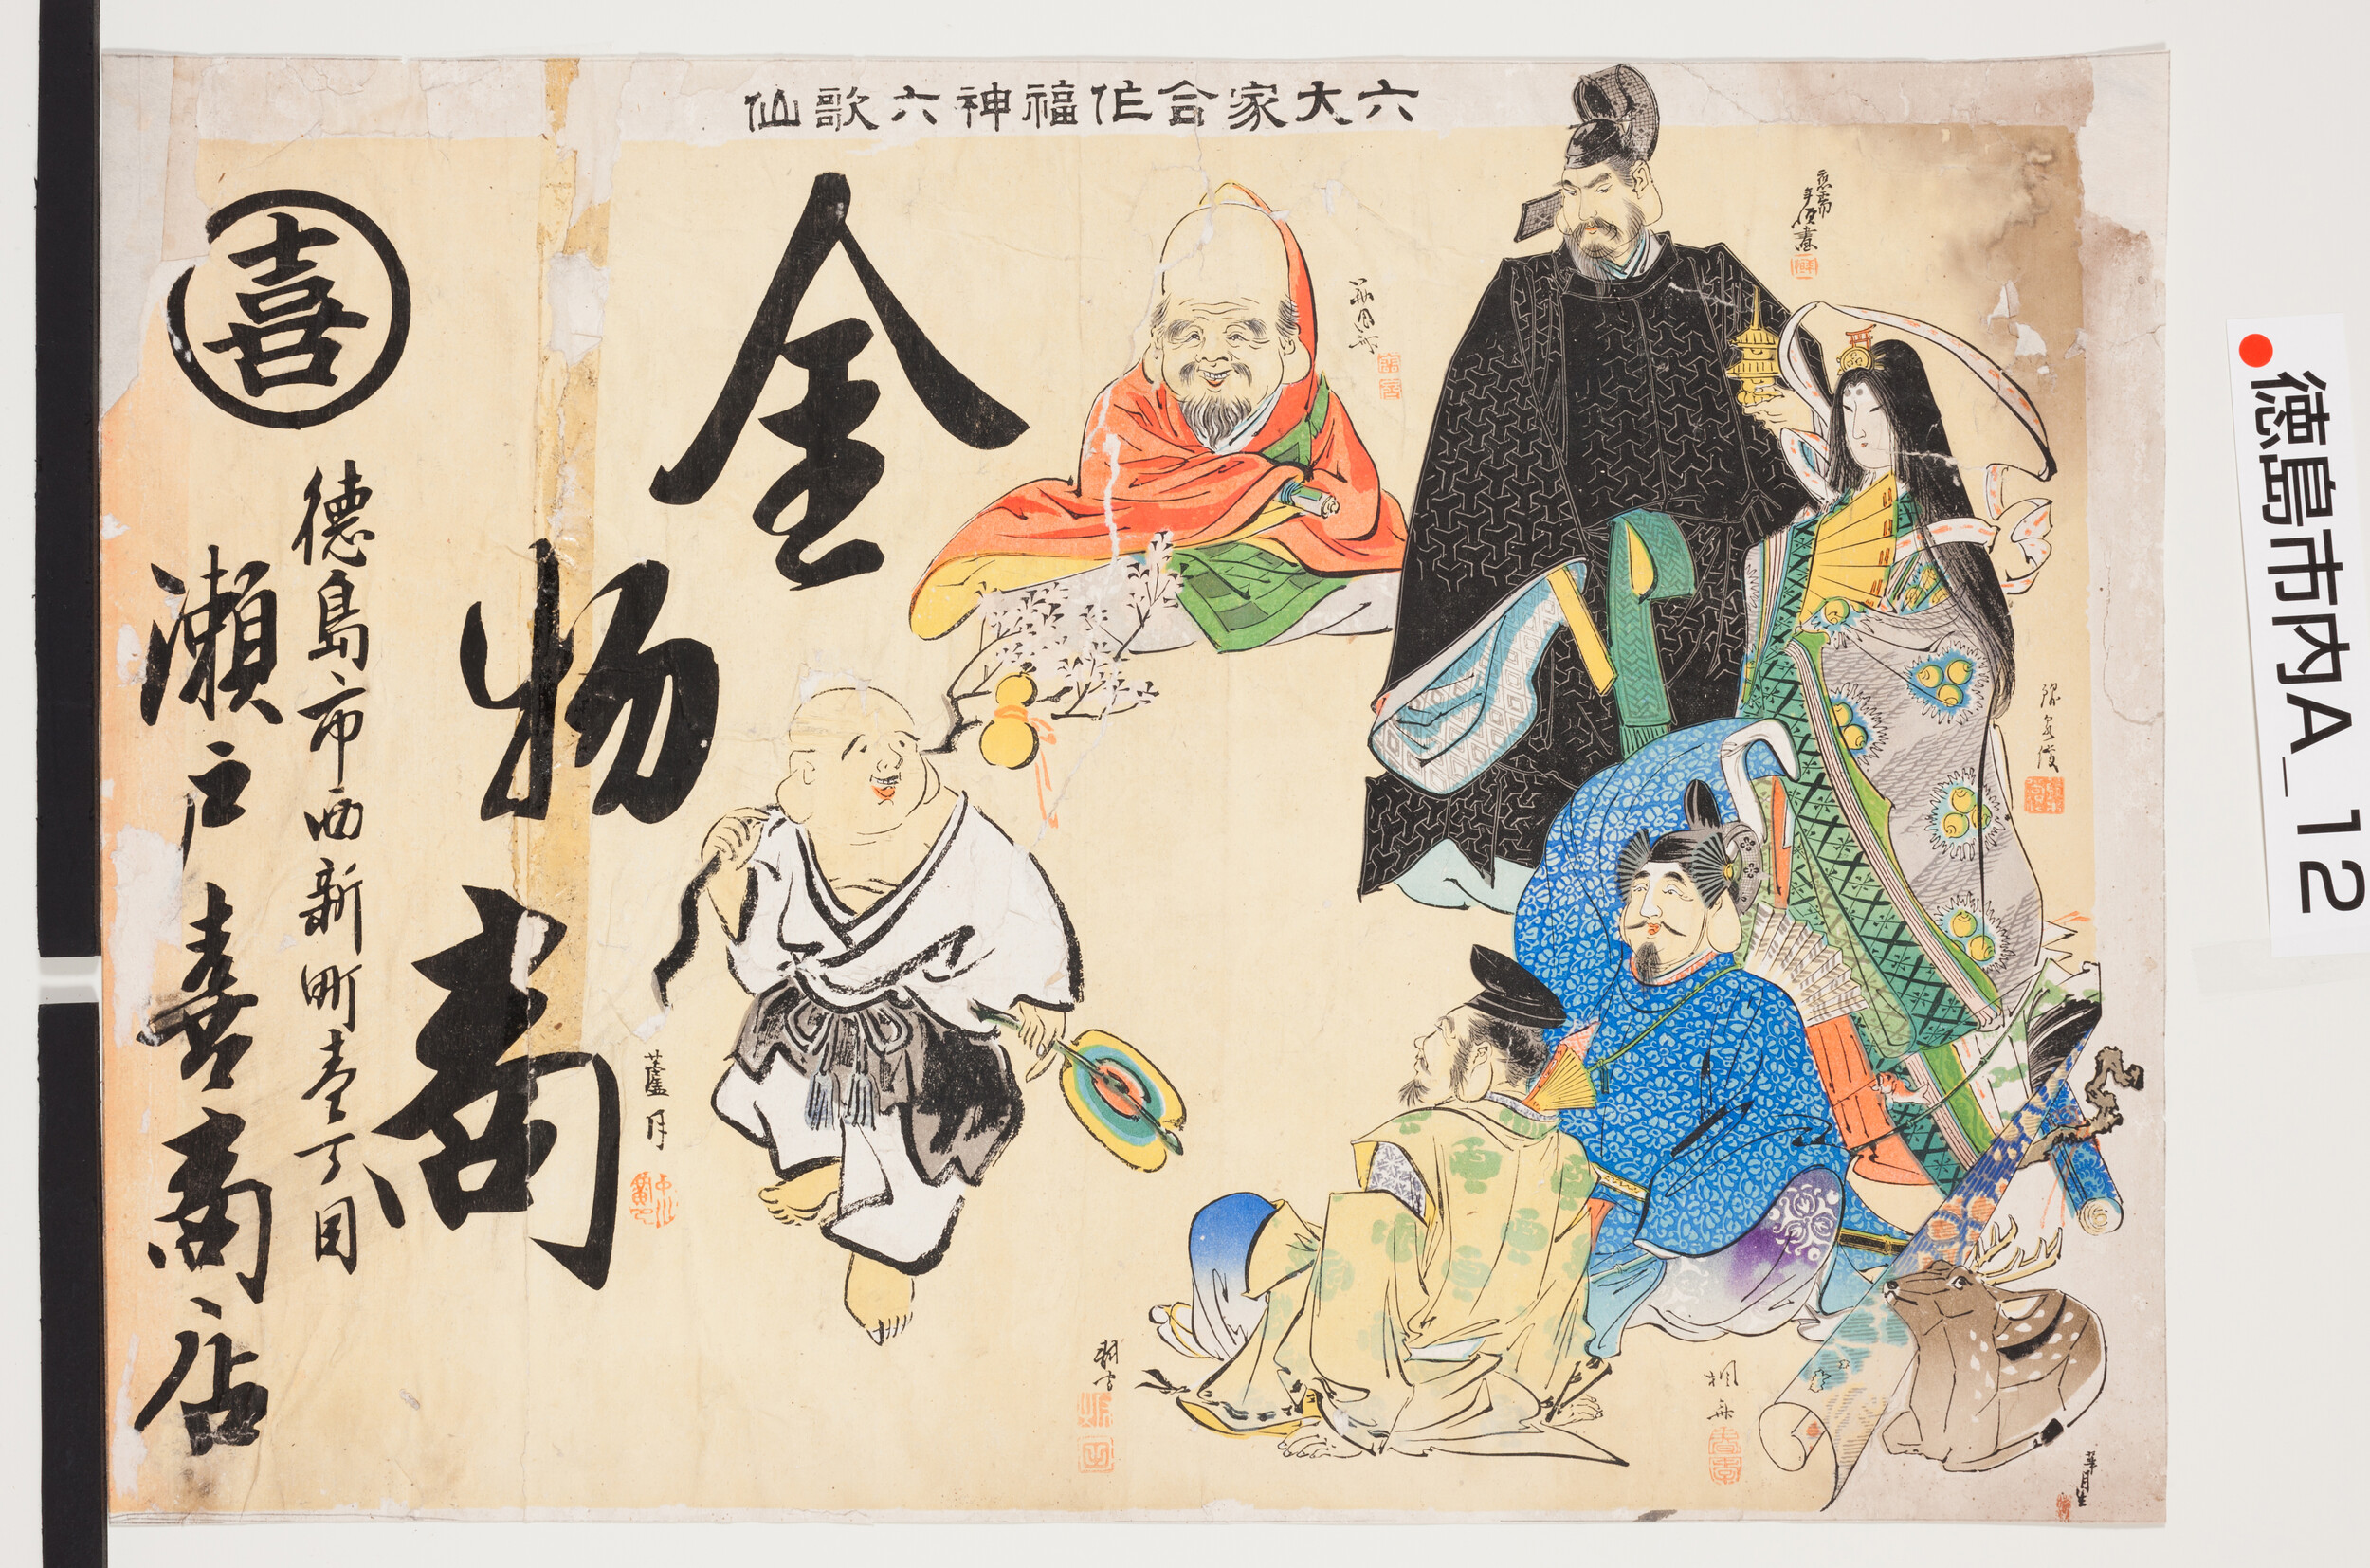 六大家合作福神六歌仙
金物商
喜
徳島市西新町壱丁目
瀬戸喜商店
蘆月
桐舟
華月生
徳島市内A_12